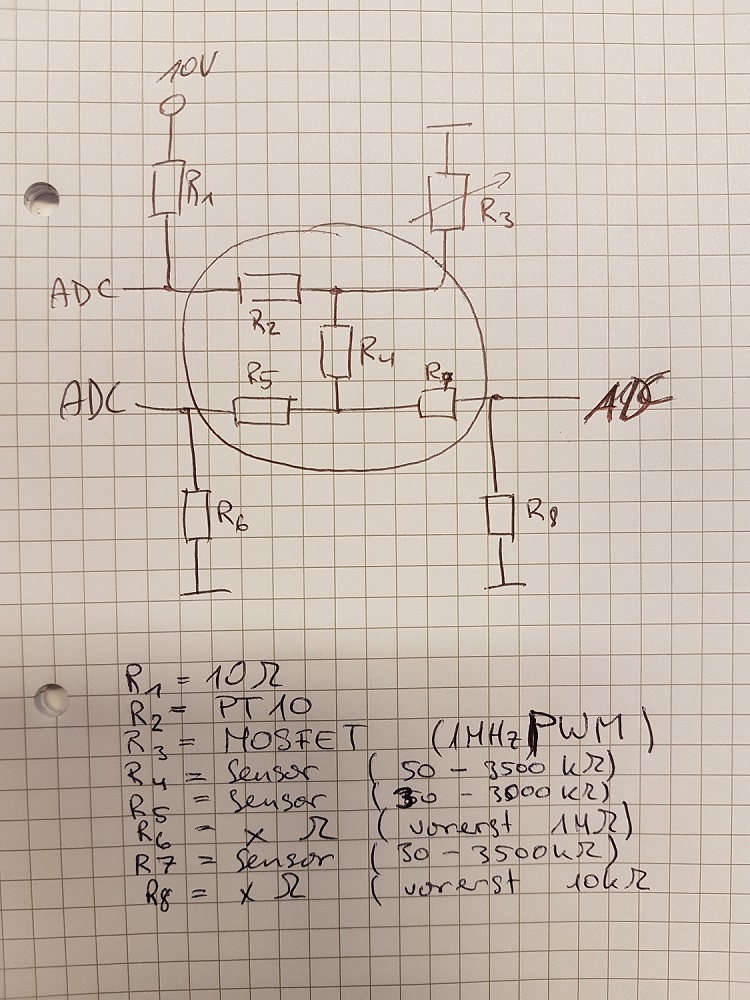 10V
R1
R3
ADC
R2
R4
R5
R7
ADC
ADC
R6
R8
R1 = 10Ω
R2 = PT10
R3 = MOSFET (1MHz PWM)
R4 = Sensor (50 - 3500 kΩ)
R5 = Sensor (30 - 3000 kΩ)
R6 = x Ω (vorerst 1MΩ)
R7 = Sensor (30 - 3500kΩ)
R8 = x Ω (vorerst 10kΩ